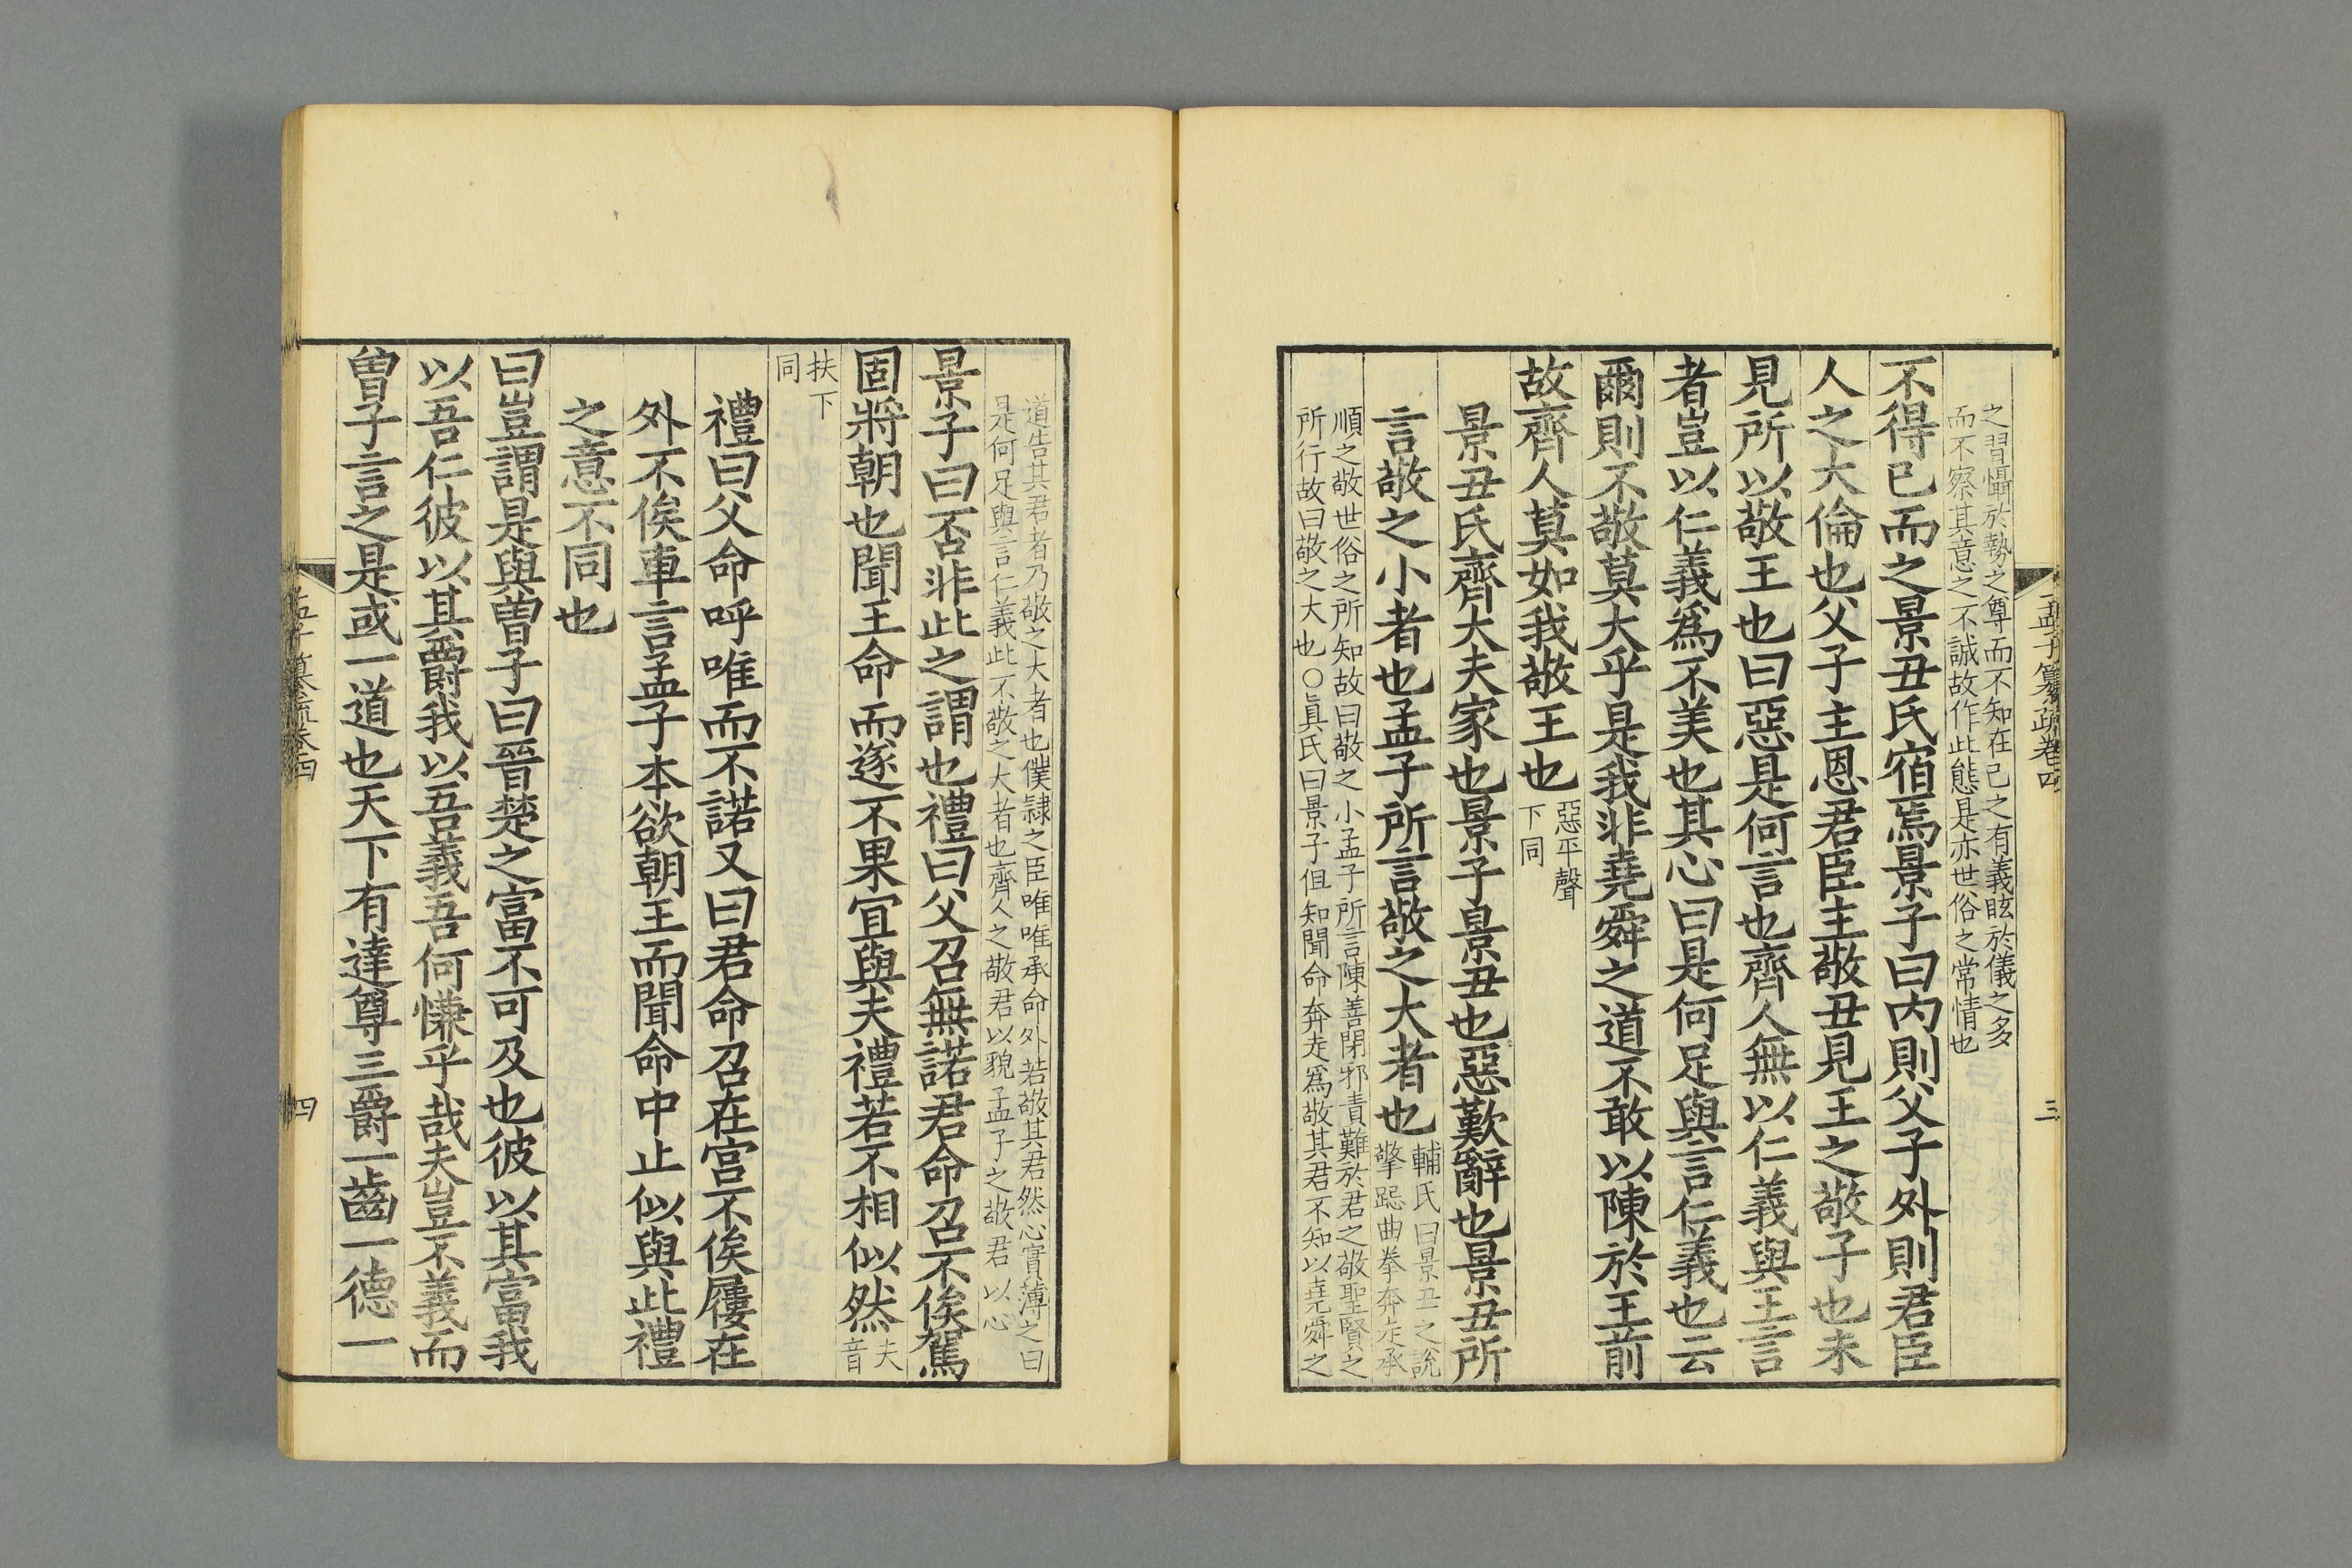 孟子纂疏卷四
三
之習懾於勢之尊而不知在己之有義眩於儀之多
而不察其意之不誠故作此態是亦世俗之常情也
不得已而之景丑氏宿焉景子曰内則父子外則君臣
人之大倫也父子主恩君臣主敬丑見王之敬子也未
見所以敬王也曰惡是何言也齊人無以仁義與王言
者豈以仁義爲不美也其心曰是何足與言仁義也云
爾則不敬莫大乎是我非堯舜之道不敢以陳於王前
故齊人莫如我敬王也
惡平聲
下同
景丑氏齊大夫家也景子景丑也惡歎辭也景丑所
言敬之小者也孟子所言敬之大者也
輔氏曰景丑之說
擎跽曲拳奔走承
順之敬世俗之所知故曰敬之小孟子所言陳善閉邪責難於君之敬聖賢之
所行故曰敬之大也○眞氏曰景子但知聞命奔走爲敬其君不知以堯舜之
道告其君者乃敬之大者也僕隷之臣唯唯承命外若敬其君然心實薄之曰
是何足與言仁義此不敬之大者也齊人之敬君以貌孟子之敬君以心
景子曰否非此之謂也禮曰父召無諾君命召不俟駕
固將朝也聞王命而遂不果宜與夫禮若不相似然
夫
音
扶下
同
禮曰父命呼唯而不諾又曰君命召在官不俟屨在
外不俟車言孟子本欲朝王而聞命中止似與此禮
之意不同也
曰豈謂是與曾子曰晉楚之富不可及也彼以其富我
以吾仁彼以其爵我以吾義吾何慊乎哉夫豈不義而
曾子言之是或一道也天下有達尊三爵一齒一德一
孟子纂疏卷四
四